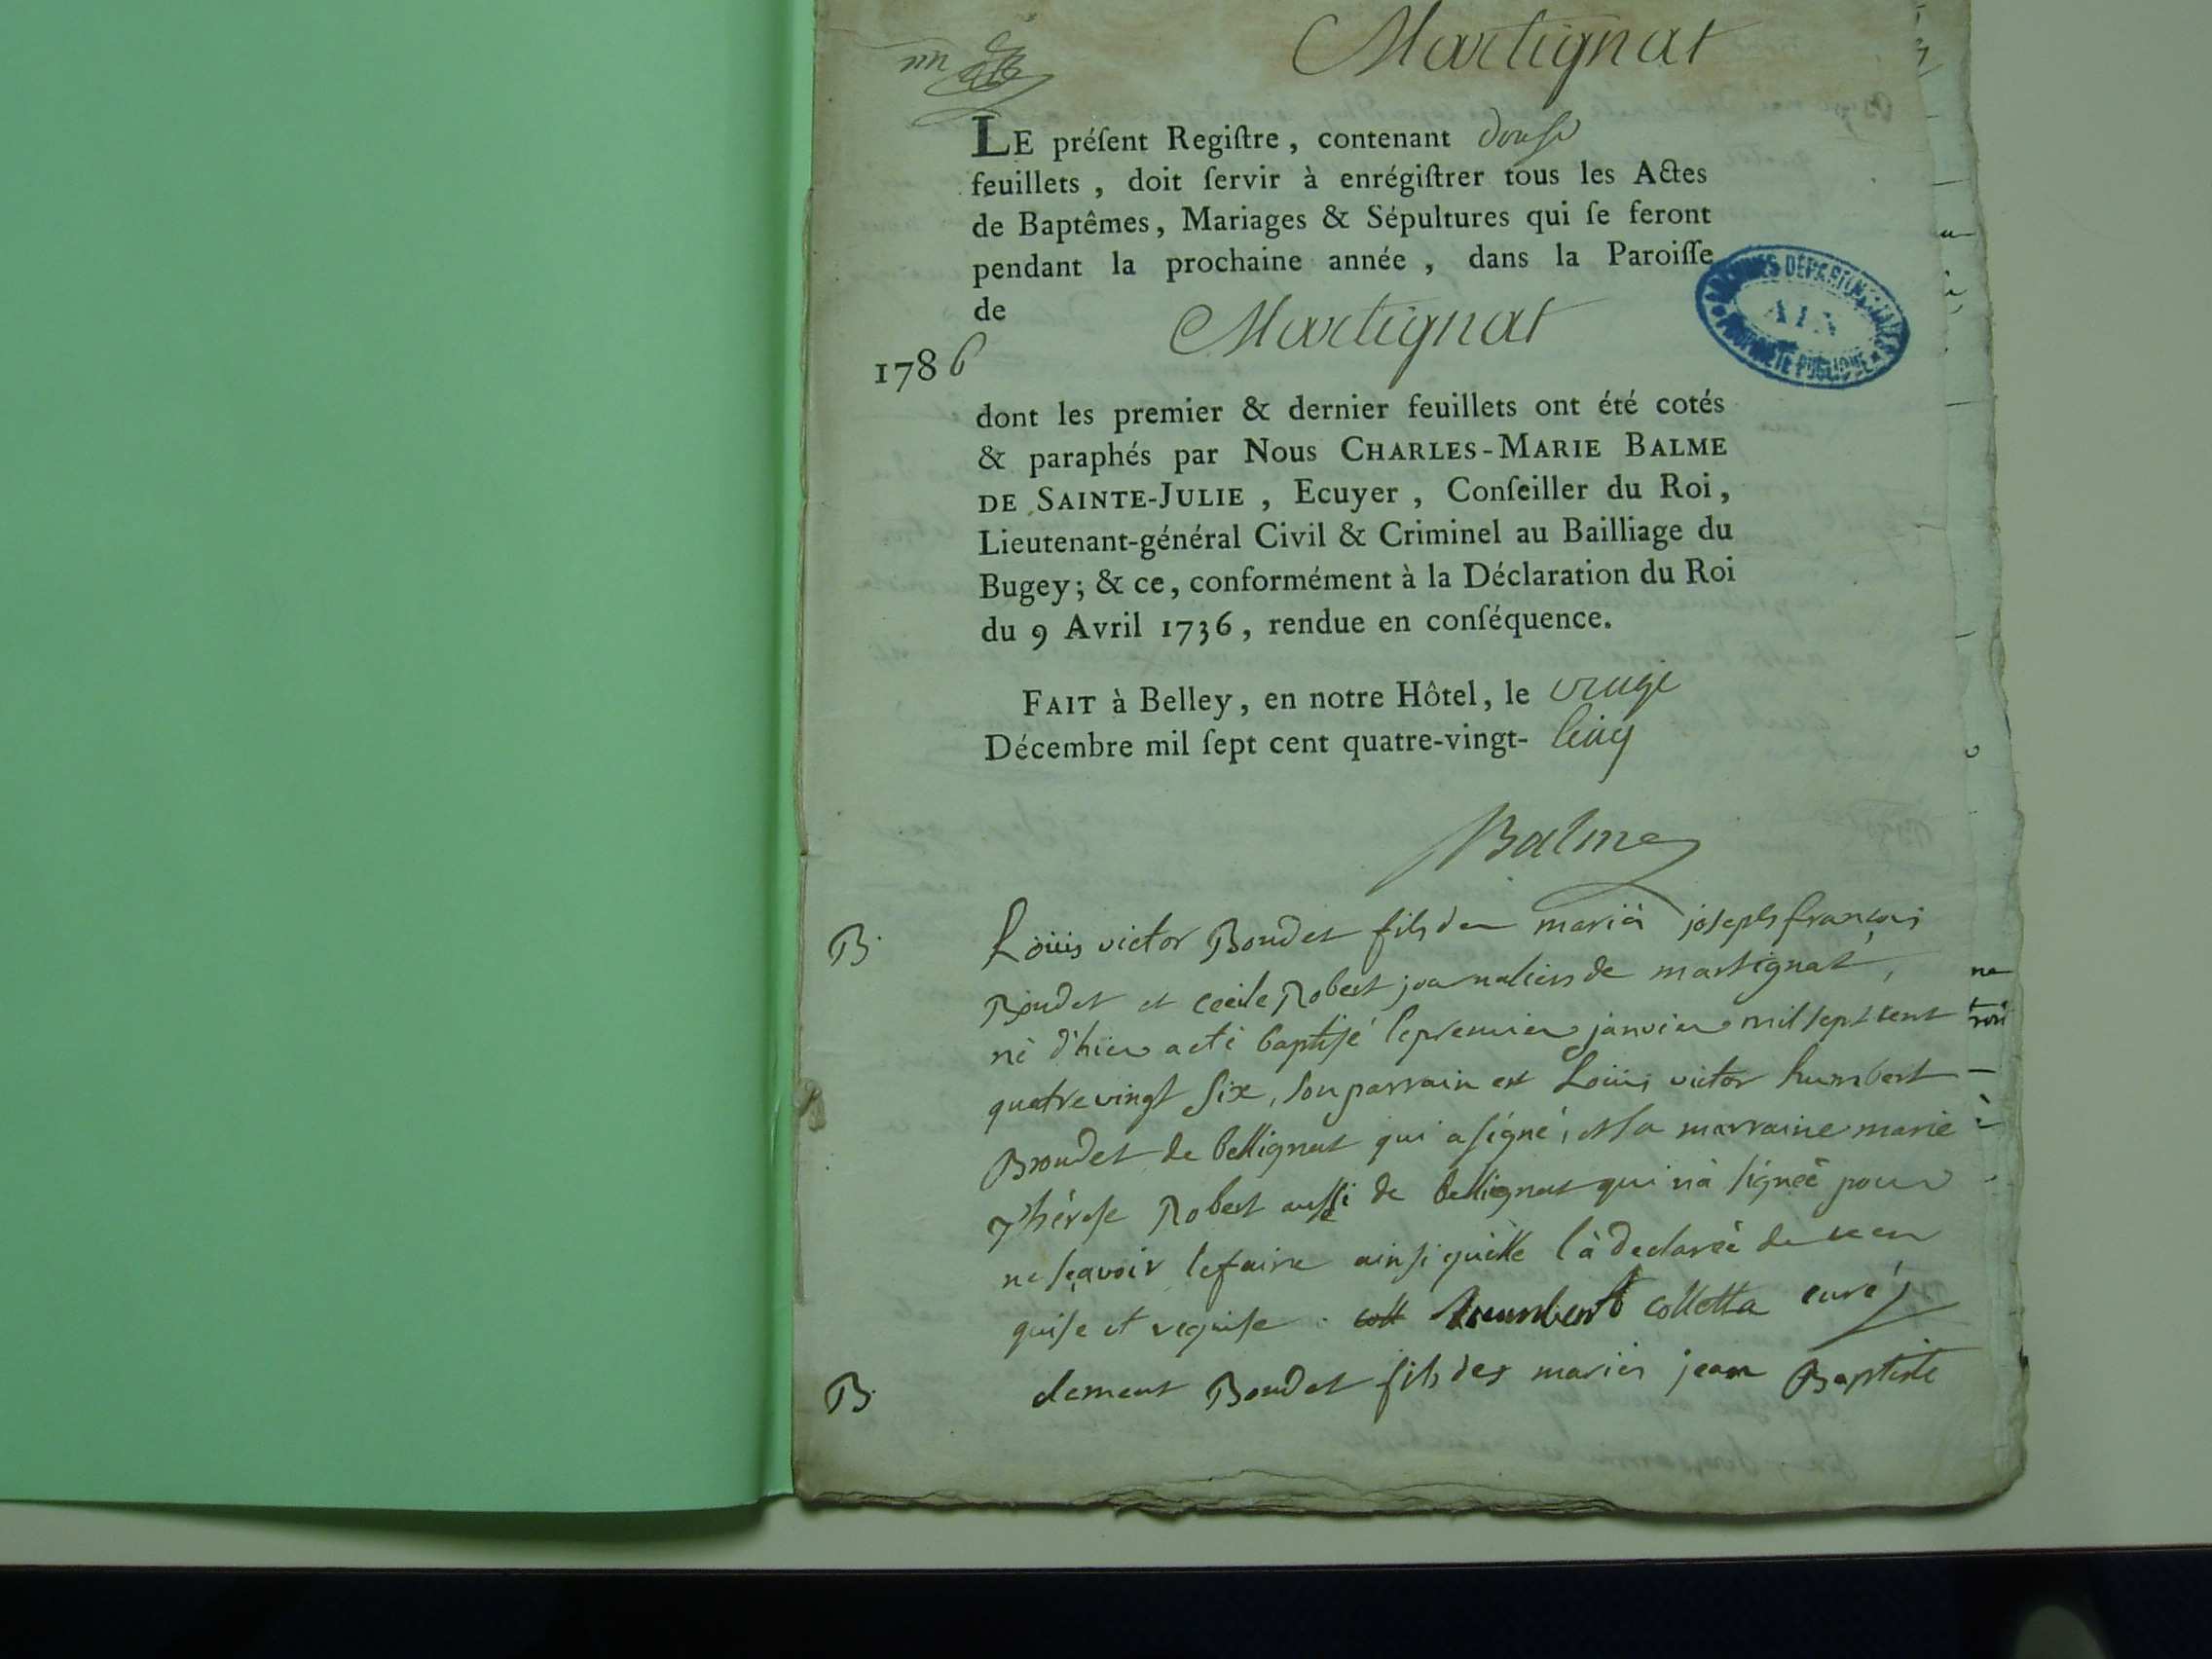 Martignat
LE préſent Regiſtre, contenant douse
feuillets, doit ſervir à enrégiſtrer tous les Actes
de Baptêmes, Mariages & Sépultures qui ſe feront
pendant la prochaine année, dans la Paroiſſe
de
Martignat
1786
ARCHIVES DÉPARTEMENTALES
AIN
PROPRIÉTÉ PUBLIQUE
dont les premier & dernier feuillets ont été cotés
& paraphés par Nous CHARLES-MARIE BALME
DE SAINTE-JULIE, Ecuyer, Conſeiller du Roi,
Lieutenant-général Civil & Criminel au Bailliage du
Bugey; & ce, conformément à la Déclaration du Roi
du 9 Avril 1736, rendue en conſéquence.
FAIT à Belley, en notre Hôtel, le
Décembre mil ſept cent quatre-vingt- cinq
Balme
B. Loüis victor Boudet fils des mariés joseph françois
Boudet et cecile Robert journaliers de martignat,
né d'hier a eté baptisé le premier janvier mil sept cent
quatre vingt six, son parrain est Loüis victor humbert
Boudet de bellignat qui a signé, et sa marraine marie
Thérese Robert aussi de bellignat qui n'a signée pour
ne sçavoir le faire ainsi qu'elle l'a declarée de ce en
quise et requise. humbert colletta curé
B. clement Boudet fils des mariés jean Baptiste